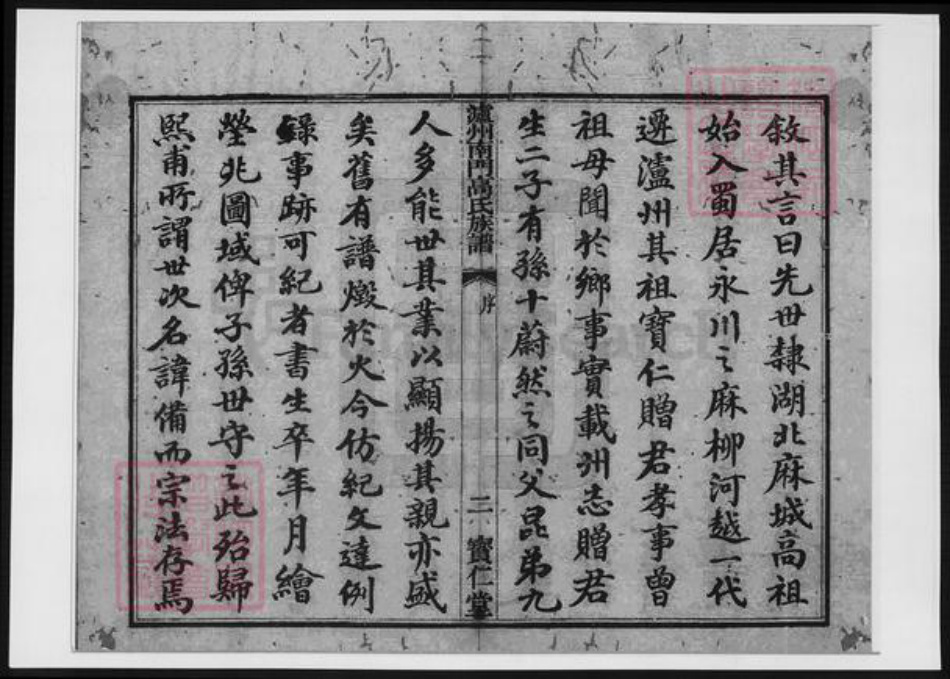 敘其言曰先世隸湖北麻城高祖
始入蜀居永川之麻柳河越一代
遷瀘州其祖寶仁贈君孝事曾
祖母聞於鄉事實載州志贈君
生二子有孫十蔚然之同父昆弟九
瀘州南門高氏族譜 序 二 寶仁堂
人多能世其業以顯揚其親亦盛
矣舊有譜燬於火今仿紀文達例
錄事跡可紀者書生卒年月繪
塋兆圖域俾子孫世守之此殆歸
熙甫所謂世次名諱備而宗法存焉